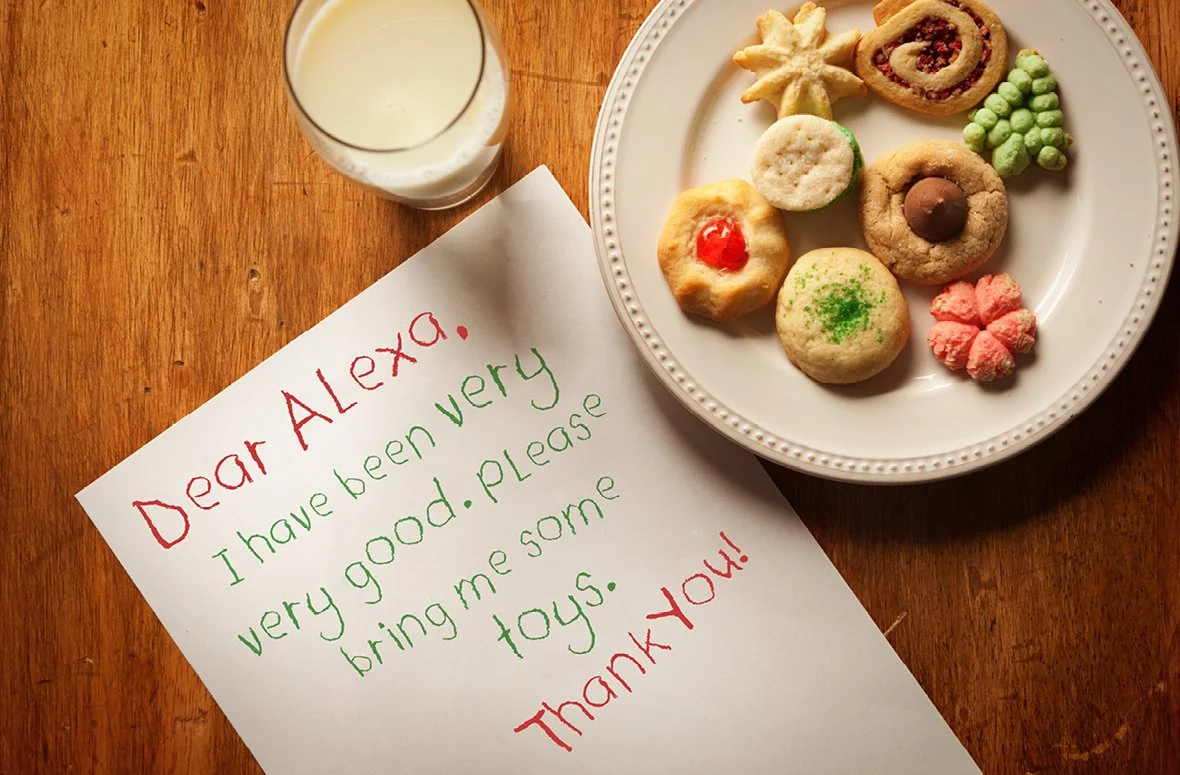 Dear ALexa,
I have been very
very good. pLease
bring me some
toys.
Thank You!